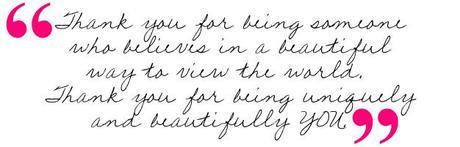 “Thank you for being someone
who believes in a beautiful
way to view the world.
Thank you for being uniquely
and beautifully YOU.”